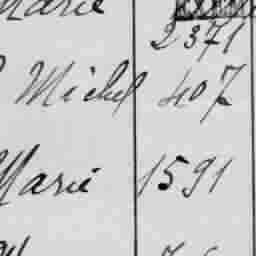 Marie
2371
Michel 407
Marie 1591